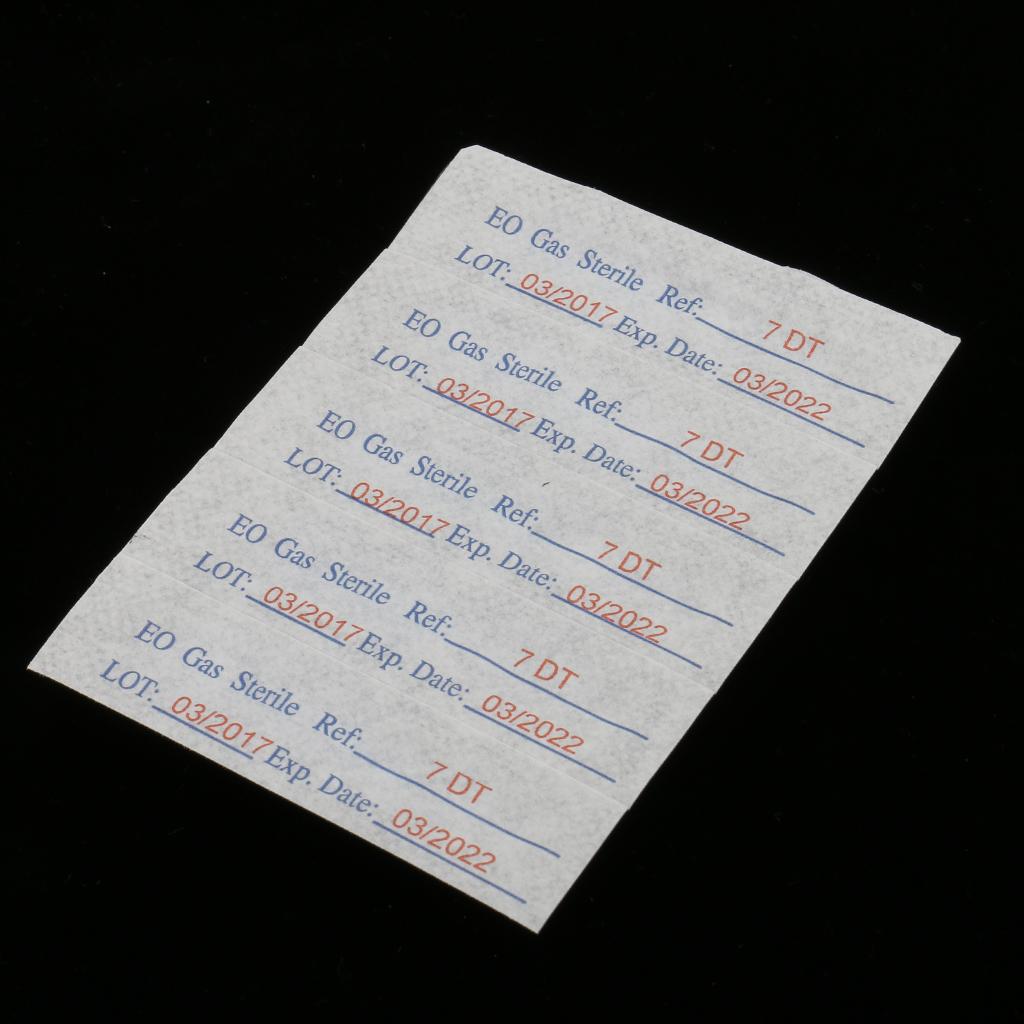 EO Gas Sterile Ref: 7 DT
LOT: 03/2017 Exp. Date: 03/2022
EO Gas Sterile Ref: 7 DT
LOT: 03/2017 Exp. Date: 03/2022
EO Gas Sterile Ref: 7 DT
LOT: 03/2017 Exp. Date: 03/2022
EO Gas Sterile Ref: 7 DT
LOT: 03/2017 Exp. Date: 03/2022
EO Gas Sterile Ref: 7 DT
LOT: 03/2017 Exp. Date: 03/2022